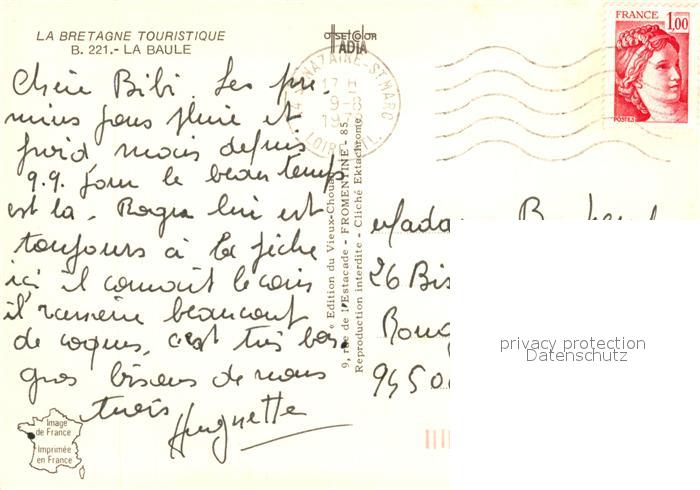 LA BRETAGNE TOURISTIQUE
B. 221.- LA BAULE
OFFSET COLOR
ADIA
FRANCE
1,00
POSTES
NAZAIRE-ST MARC
17 H
9-8
LOIRE ATL.
Chère Bibi. Les pre
miers jours pluie et
froid mais depuis
q.q. jour le beau temps
est là. Roger lui est
toujours à la pêche
ici il connait le coin
il ramène beaucoup
de coques, c'est très bon.
gros bisous de nous
trois
Huguette
« Edition du Vieux-Chouan
9, rue de l'Estacade - FROMENTINE - 85.
Reproduction interdite - Cliché Ektachrome
Madame
26 Bis
94500
privacy protection
Datenschutz
Image
de France
Imprimée
en France